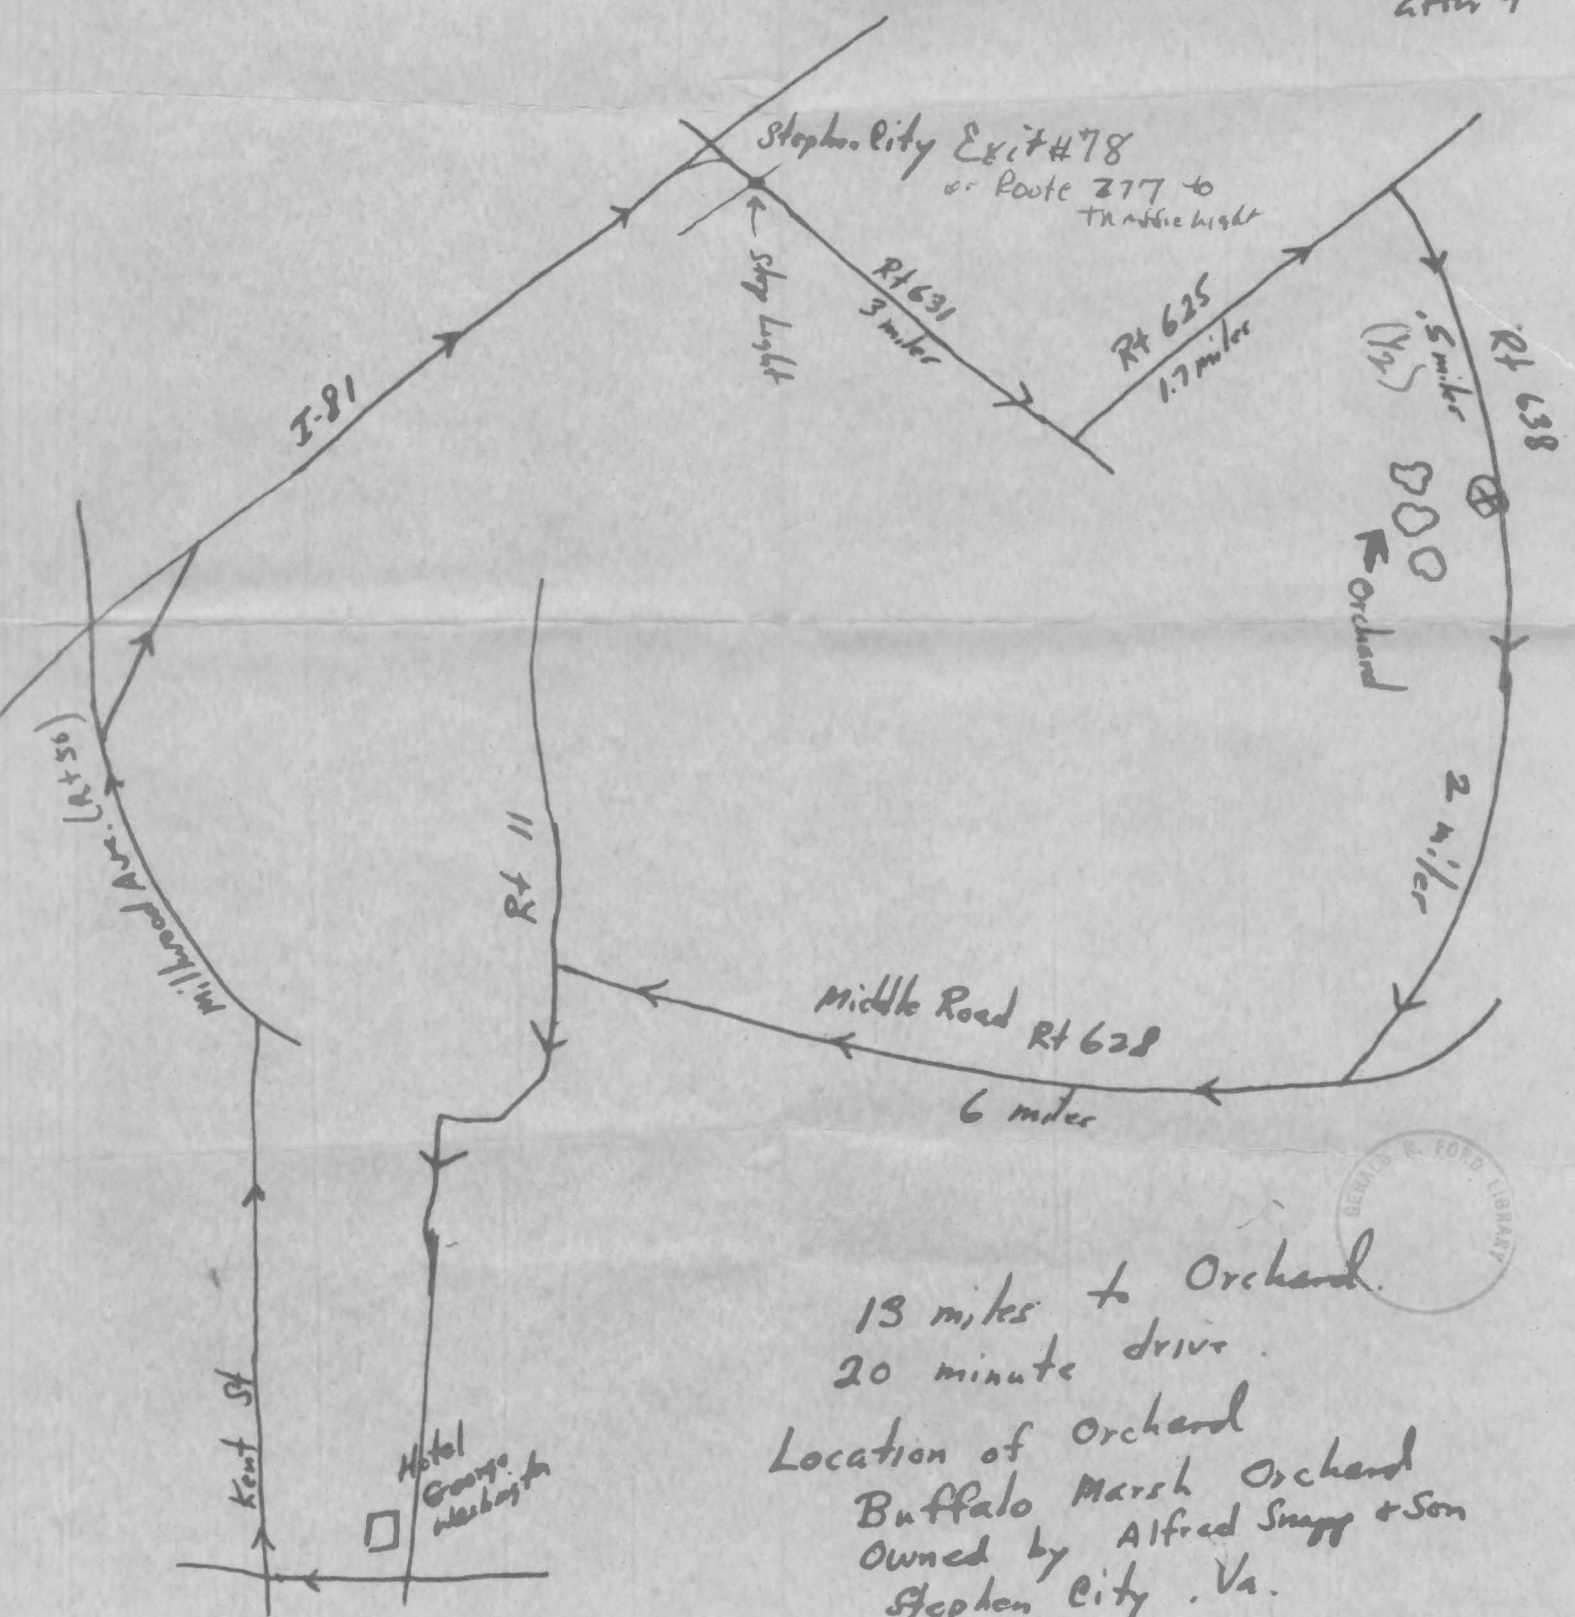 Stephen City Exit #78
or Route 277 to
Traffic Light
Stop Light
Rt 631
3 miles
Rt 625
1.7 miles
Rt 638
.5 miles
(1/2)
Orchard
2 miles
I-81
Millwood Ave. (Rt 50)
Rt 11
Middle Road Rt 628
6 miles
Kent St
Hotel
George
Washington
GERALD R. FORD LIBRARY
13 miles to Orchard.
20 minute drive.
Location of Orchard
Buffalo Marsh Orchard
Owned by Alfred Snapp & Son
Stephen City, Va.